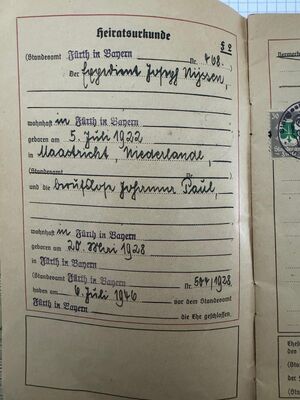 Heiratsurkunde
§ 2
(Standesamt Fürth in Bayern Nr. 468.)
Der Expedient Joseph Nijssen,
wohnhaft in Fürth in Bayern
geboren am 5. Juli 1922
in Maastricht, Niederlande,
(Standesamt Nr.
und die berufslose Johanna Paul,
wohnhaft in Fürth in Bayern
geboren am 20. Mai 1928
in Fürth in Bayern
(Standesamt Fürth in Bayern Nr. 544/1928.
haben am 6. Juli 1946 vor dem Standesamt
Fürth in Bayern die Ehe geschlossen.
30
(Stan
der F
(Stan